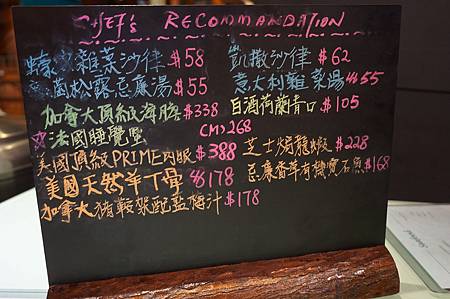 CHEF's RECOMMANDATION
雜菜沙律 $58 凱撒沙律 $62
菌松露忌廉湯 $55 意大利雜菜湯 $55
加拿大頂級海膽 $338 白酒荷蘭青口 $105
法國睡覺蟹 (M) 268
美國頂級PRIME肉眼 $388 芝士焗龍蝦 $228
美國天然羊丁骨 $178 忌廉香草有機寶石魚 $168
加拿大豬鞍架配藍梅汁 $178